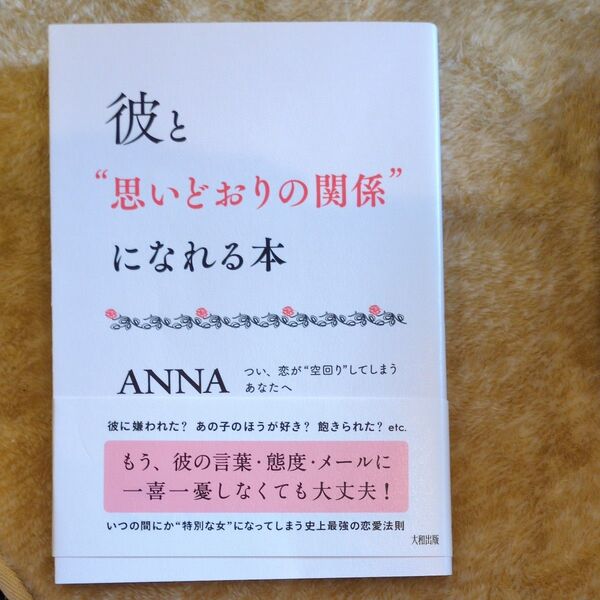 彼と
“思いどおりの関係”
になれる本
ANNA
つい、恋が“空回り”してしまう
あなたへ
彼に嫌われた? あの子のほうが好き? 飽きられた? etc.
もう、彼の言葉・態度・メールに
一喜一憂しなくても大丈夫!
いつの間にか“特別な女”になってしまう史上最強の恋愛法則
大和出版